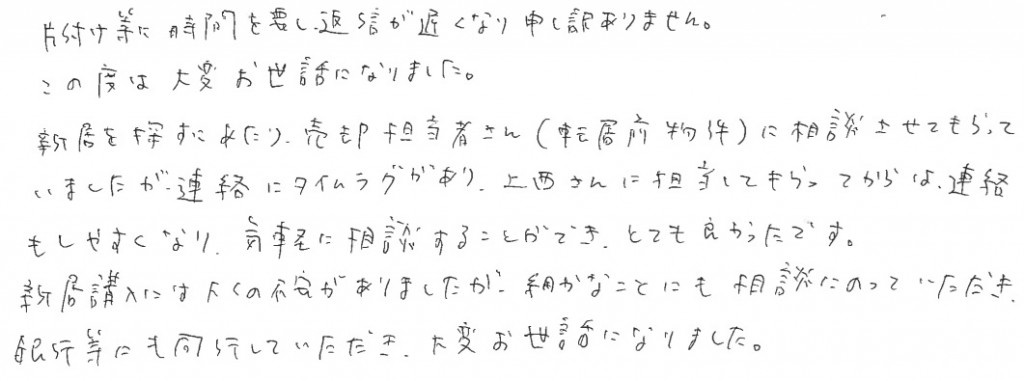 片付け等に時間を要し、返信が遅くなり申し訳ありません。
この度は大変お世話になりました。
新居を探すにあたり、売却担当者さん(転居前物件)に相談させてもらって
いましたが、連絡にタイムラグがあり、上西さんに担当してもらってからは、連絡
もしやすくなり、気軽に相談することができ、とても良かったです。
新居購入には多くの不安がありましたが、細かなことにも相談にのっていただき、
銀行等にも同行していただき、大変お世話になりました。